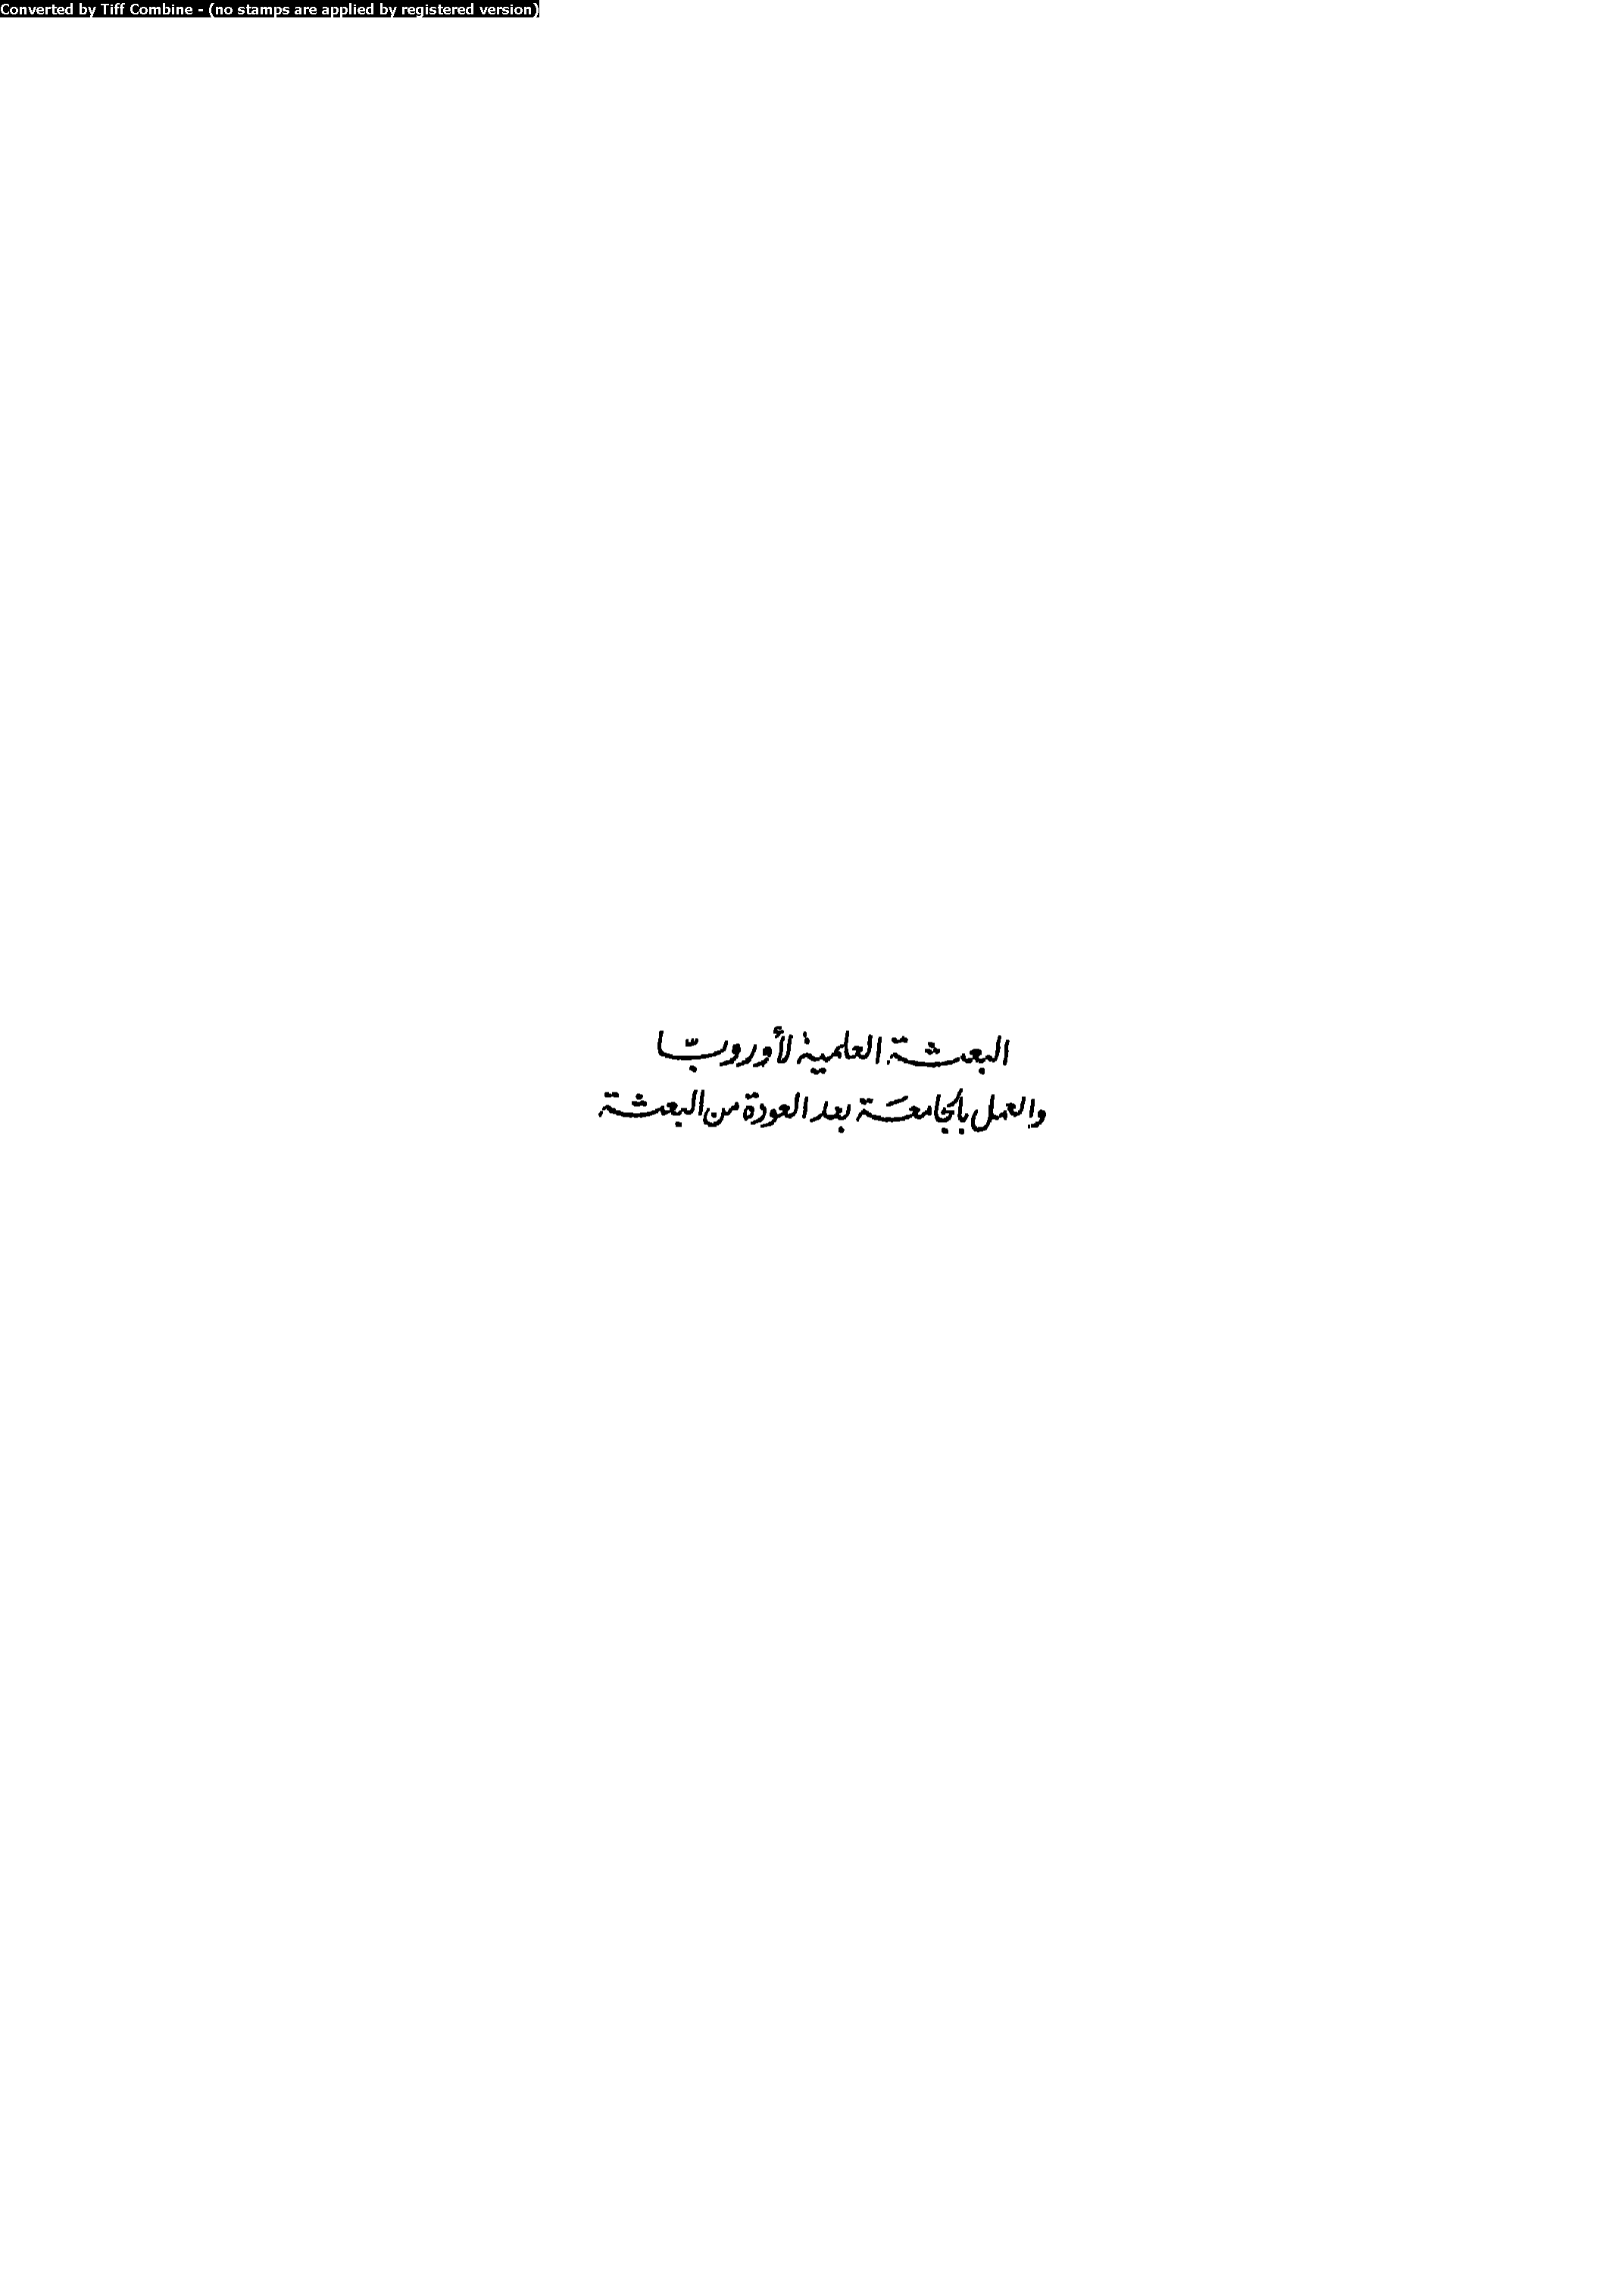 Converted by Tiff Combine - (no stamps are applied by registered version)
البعثة العلمية لأوروبّا
والعمل بالجامعَة بعد العودة من البعثة